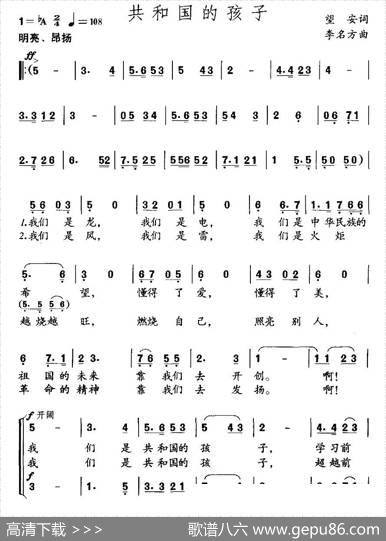 共和国的孩子
1=♭A 2/4 ♩=108
望 安词
明亮、昂扬
李名方曲
ff
5 - | 3. 4 | 5.6 53 | 5.4 43 | 2 - | 2.4 23 | 4 -
3.3 12 | 3 - | 05 34 | 5.6 53 | 5.4 43 | 2 06 | 67 1
2.7 26 | 6. 52 | 7.5 25 | 55 65 2 | 7.1 21 | 1 5.5 | 50 50)
56 03 | 5 0 | 32 01 | 5 0 | 6 6.7 | 1.1 7 66
1.我们 是 龙， 我们 是 电， 我 们 是 中华民族的
2.我们 是 风， 我们 是 雷， 我 们 是 火 炬
5. 6 | 3 0 | 67 05 | 6 0 | 43 02 | 5 0
希 望， 懂得 了 爱， 懂得 了 美，
(5. 5 56)
越烧越 旺， 燃烧 自 己， 照亮 别 人，
6 7.1 | 2 3. | 76 5.5 | 6 23 | 1 - | 11 23
祖 国的 未来 靠 我们 去 开 创。 啊！
革 命的 精神 靠 我们 去 发 扬。 啊！
f 开阔
5 - | 3. 4 | 5.6 53 | 5 43 | 2 - | 2.4 23
我 们 是 共和国的 孩 子， 学习前
我 们 是 共和国的 孩 子， 超越前
f
3 - | 1. 2
高清下载 >>>
歌谱八六 www.gepu86.com